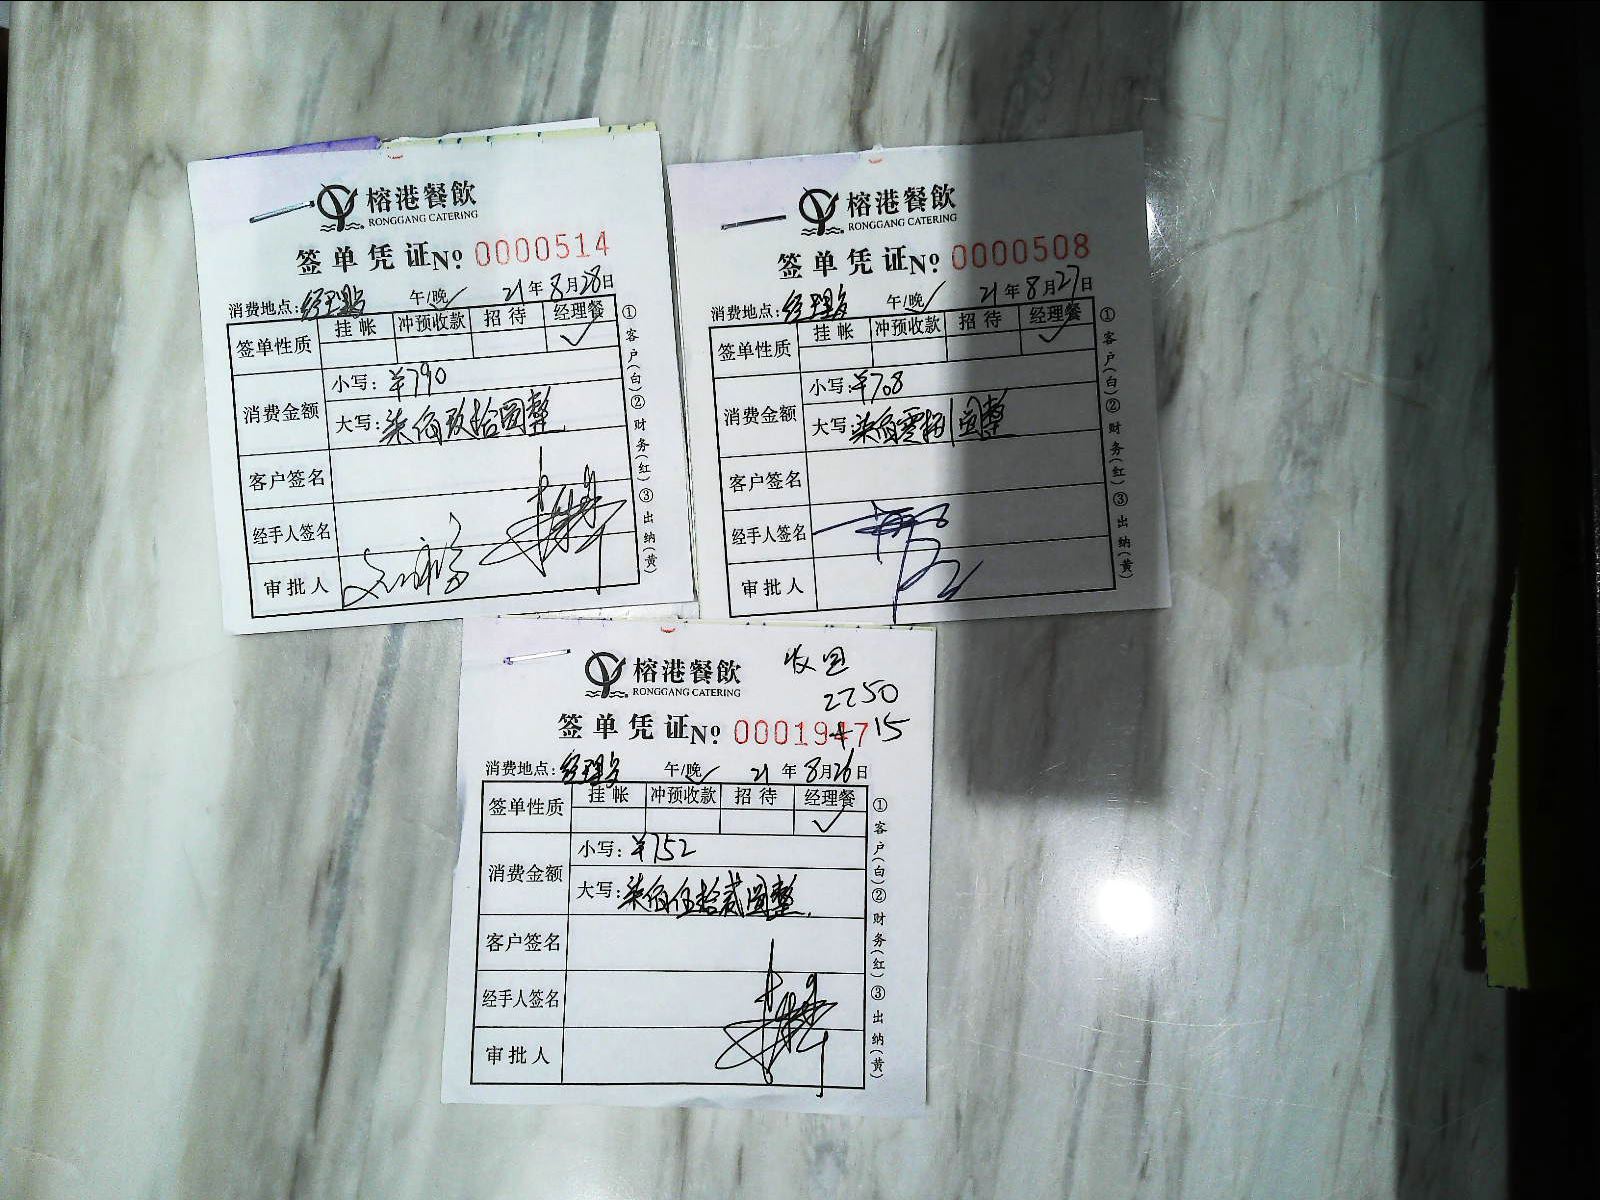 榕港餐飲
RONGGANG CATERING
签单凭证No. 0000514
消费地点: 经理 午/晚✓ 21年8月28日
签单性质 挂帐 冲预收款 招待 经理餐
✓
消费金额 小写: ¥790
大写: 柒佰玖拾圆整
客户签名
经手人签名
审批人
①客户(白)②财务(红)③出纳(黄)
榕港餐飲
RONGGANG CATERING
签单凭证No. 0000508
消费地点: 经理 午/晚✓ 21年8月27日
签单性质 挂帐 冲预收款 招待 经理餐
✓
消费金额 小写: ¥708
大写: 柒佰零捌圆整
客户签名
经手人签名
审批人
①客户(白)②财务(红)③出纳(黄)
榕港餐飲
RONGGANG CATERING
收回
2250
+15
签单凭证No. 0001947
消费地点: 经理 午/晚✓ 21年8月26日
签单性质 挂帐 冲预收款 招待 经理餐
✓
消费金额 小写: ¥752
大写: 柒佰伍拾贰圆整
客户签名
经手人签名
审批人
①客户(白)②财务(红)③出纳(黄)